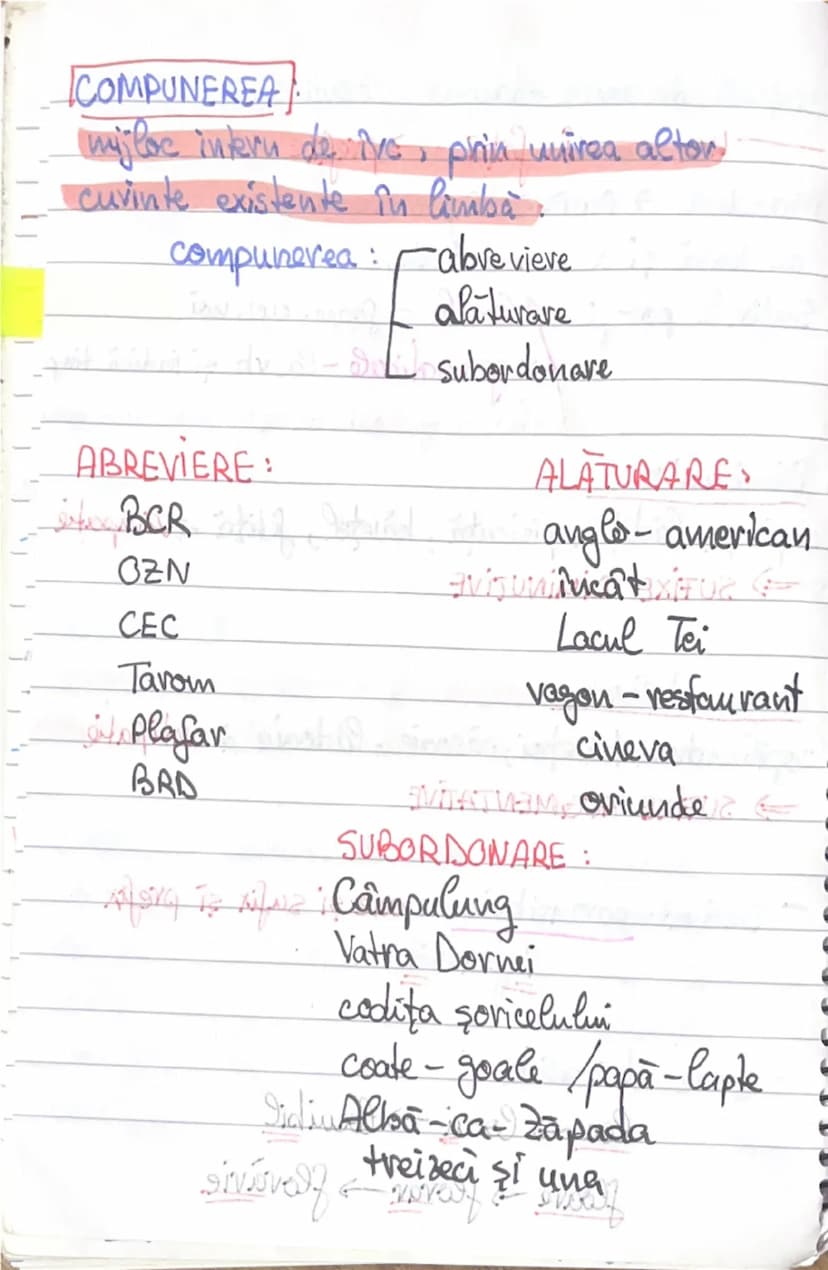 COMPUNEREA:
mijloc intern de îvc, prin unirea altor
cuvinte existente în limbă.
compunerea:
abreviere
alăturare
subordonare
ABREVIERE:
BCR
OZN
CEC
Tarom
Plafar
BRD
ALĂTURARE:
anglo-american
încât
Lacul Tei
vagon-restaurant
cineva
oriunde
SUBORDONARE:
Câmpulung
Vatra Dornei
codița șoricelului
coate-goale /papă-lapte
Albă-ca-Zăpada
treizeci și una